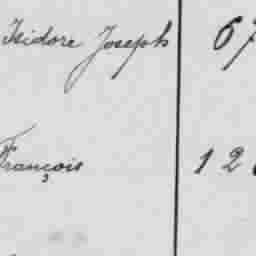 Isidore Joseph 67
François 12